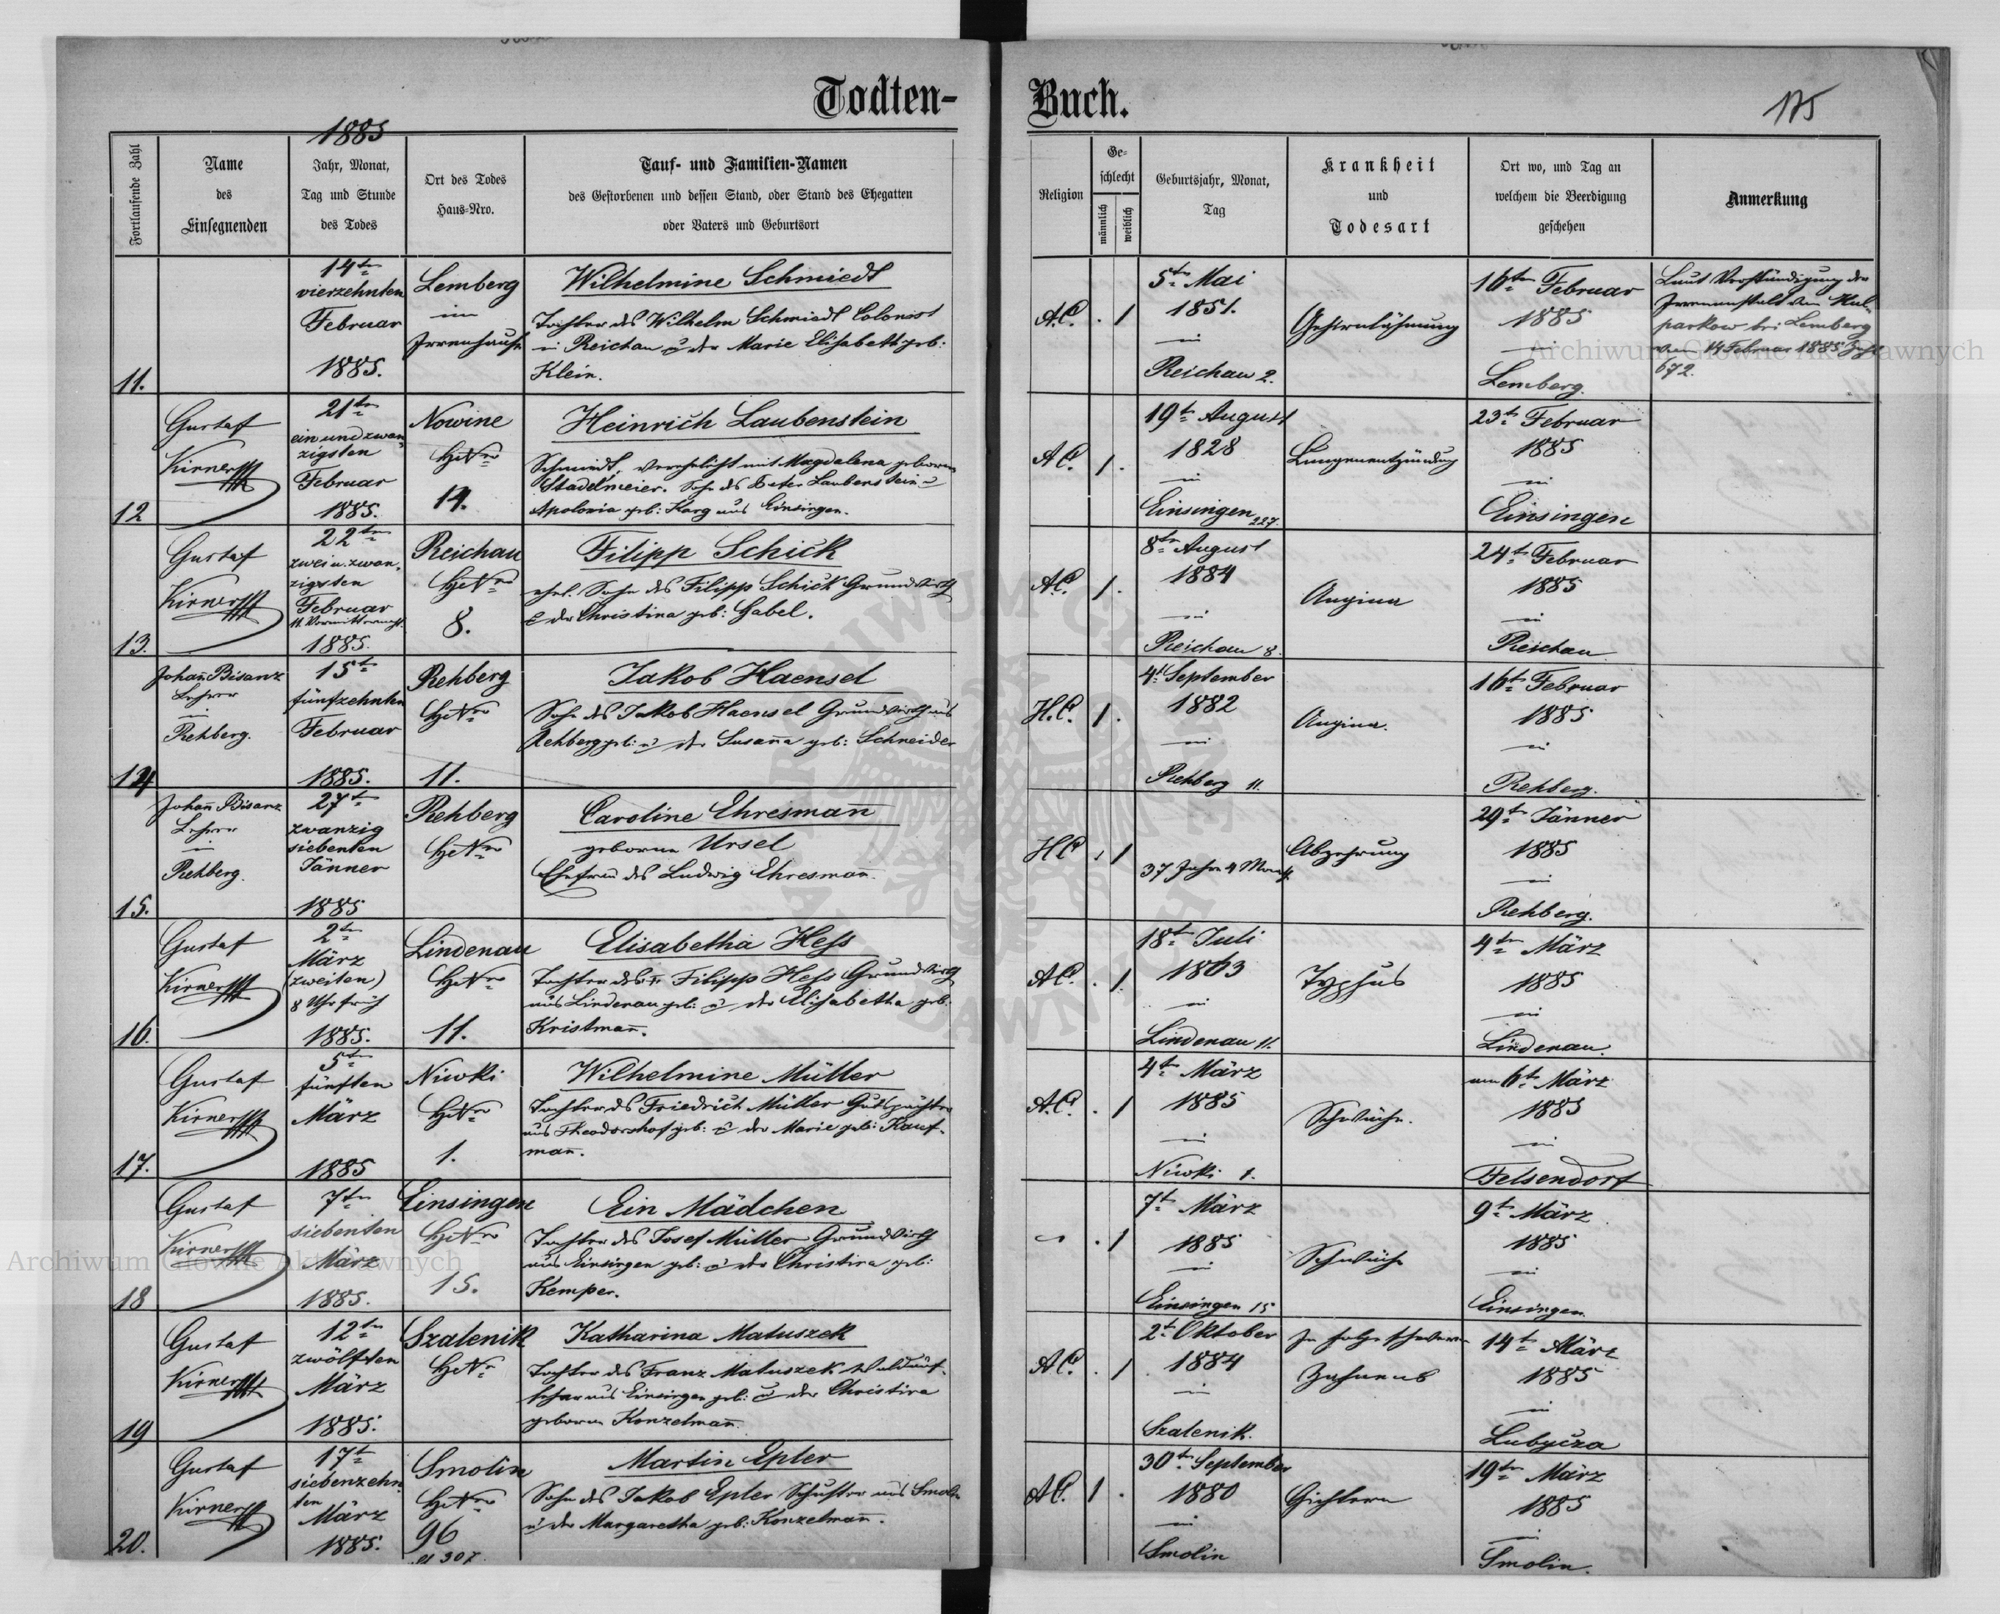 Todten-
Buch.
175
1885
Fortlaufende Zahl
Name
des
Einsegnenden
Jahr, Monat,
Tag und Stunde
des Todes
Ort des Todes
Haus-Nro.
Tauf- und Familien-Namen
des Gestorbenen und dessen Stand, oder Stand des Ehegatten
oder Vaters und Geburtsort
Religion
Ge-
schlecht
männlich
weiblich
Geburtsjahr, Monat,
Tag
Krankheit
und
Todesart
Ort wo, und Tag an
welchem die Beerdigung
geschehen
Anmerkung
11.
14ten
vierzehnten
Februar
1885.
Lemberg
im
Irrenhause
Wilhelmine Schmiedt
Tochter des Wilhelm Schmiedt Colonist
in Reichau u der Marie Elisabeth geb:
Klein.
A.C.
. 1
5ten Mai
1851.
in
Reichau 2.
Gehirnlähmung
16ten Februar
1885
Lemberg.
Laut Verständigung der
Irrenanstalt am Kul-
parkow bei Lemberg
vom 14 Februar 1885 Zahl
672.
12
Gustaf
Kirner
21ten
ein und zwan
zigsten
Februar
1885.
Nowine
HsNro
14.
Heinrich Laubenstein
Schmiedt, verehelicht mit Magdalena geborene
Stadelmeier. Sohn des Peter Laubenstein u
Apolonia geb: Karg aus Einsingen.
A.C.
1 .
19te August
1828
in
Einsingen 227
Lungenentzündung
23te Februar
1885
in
Einsingen
13.
Gustaf
Kirner
22ten
zwei u. zwan,
zigsten
Februar
11. Vormitternacht
1885.
Reichau
HsNro
8.
Filipp Schick
ehel. Sohn des Filipp Schick Grundwirth
u der Christina geb: Gabel.
A.C.
1 .
8ten August
1884
in
Reichau 8.
Angina
24te Februar
1885
in
Reichau
14
Johan̄ Bisanz
Lehrer
in
Rehberg.
15te
fünfzehnten
Februar
1885.
Rehberg
HsNro
11.
Jakob Haensel
Sohn des Jakob Haensel Grundwirth aus
Rehberg geb: u der Susan̄a geb: Schneider
H.C.
1 .
4te September
1882
in
Rehberg 11.
Angina.
16te Februar
1885
in
Rehberg.
15.
Johan̄ Bisanz
Lehrer
in
Rehberg.
27te
zwanzig
siebenten
Jänner
1885
Rehberg
HsNro
Caroline Ehresman̄
geborene Ursel
Ehefrau des Ludwig Ehresman̄.
H.C.
. 1
37 Jahre 4 Monat
Abzehrung
29te Jänner
1885
in
Rehberg.
16.
Gustaf
Kirner
2ten
März
(zweiten)
8 Uhr früh
1885.
Lindenau
HsNro
11.
Elisabetha Hess
Tochter des Filipp Hess Grundwirth
aus Lindenau geb: u der Elisabetha geb:
Kristman̄.
A.C.
. 1
18te Juli
1863
in
Lindenau 11.
Typhus
4ten März
1885
in
Lindenau.
17.
Gustaf
Kirner
5ten
fünften
März
1885
Niwki
HsNro
1.
Wilhelmine Müller
Tochter des Friedrich Müller Gutspächter
aus Theodorshof geb: u der Marie geb: Kauf-
man̄.
A.C.
. 1
4te März
1885
in
Niwki 1.
Schwäche.
am 6te März
1885
in
Felsendorf
18
Gustaf
Kirner
7ten
siebenten
März
1885.
Einsingen
HsNro
15.
Ein Mädchen
Tochter des Josef Müller Grundwirth
aus Einsingen geb: u der Christina geb:
Kemper.
. 1
7te März
1885
in
Einsingen 15
Schwäche
9te März
1885
in
Einsingen.
19
Gustaf
Kirner
12ten
zwölften
März
1885.
Szalenik
HsNro
Katharina Matuszek
Tochter des Franz Matuszek Waldauf-
seher aus Einsingen geb: u der Christina
geborene Konzelman̄.
A.C.
. 1
2te Oktober
1884
in
Szalenik.
In Folge schweren
Zahnens
14te März
1885
in
Lubycza
20.
Gustaf
Kirner
17te
siebenzehn,
ten
März
1885.
Smolin
HsNro
96
307
Martin Epler
Sohn des Jakob Epler Schuster aus Smolin
u der Margaretha geb: Konzelman̄.
A.C.
1 .
30te September
1880
in
Smolin
Gichtern
19te März
1885
in
Smolin.
Archiwum Główne Akt Dawnych
Archiwum Główne Akt Dawnych